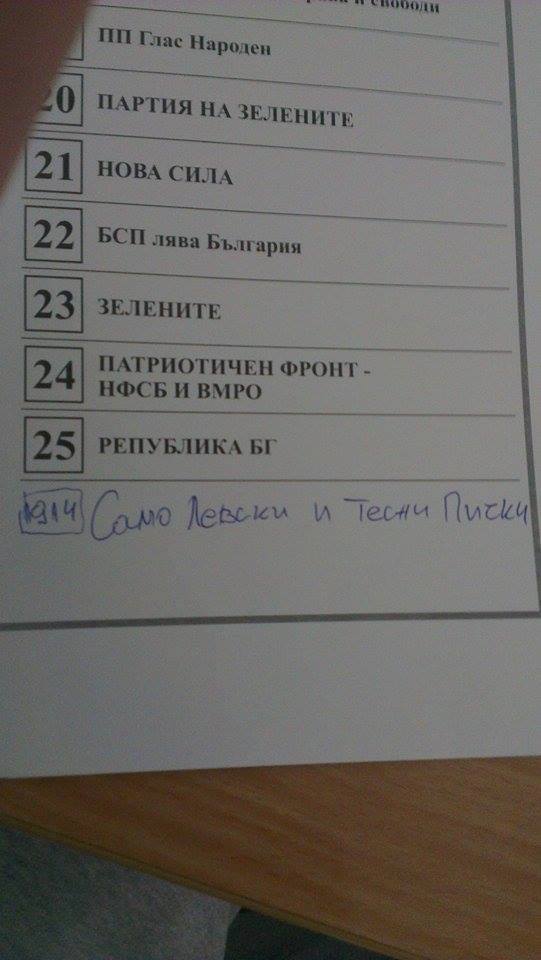 и свободи
ПП Глас Народен
20 ПАРТИЯ НА ЗЕЛЕНИТЕ
21 НОВА СИЛА
22 БСП лява България
23 ЗЕЛЕНИТЕ
24 ПАТРИОТИЧЕН ФРОНТ -
НФСБ И ВМРО
25 РЕПУБЛИКА БГ
1914 Само Левски и Тесни Пички